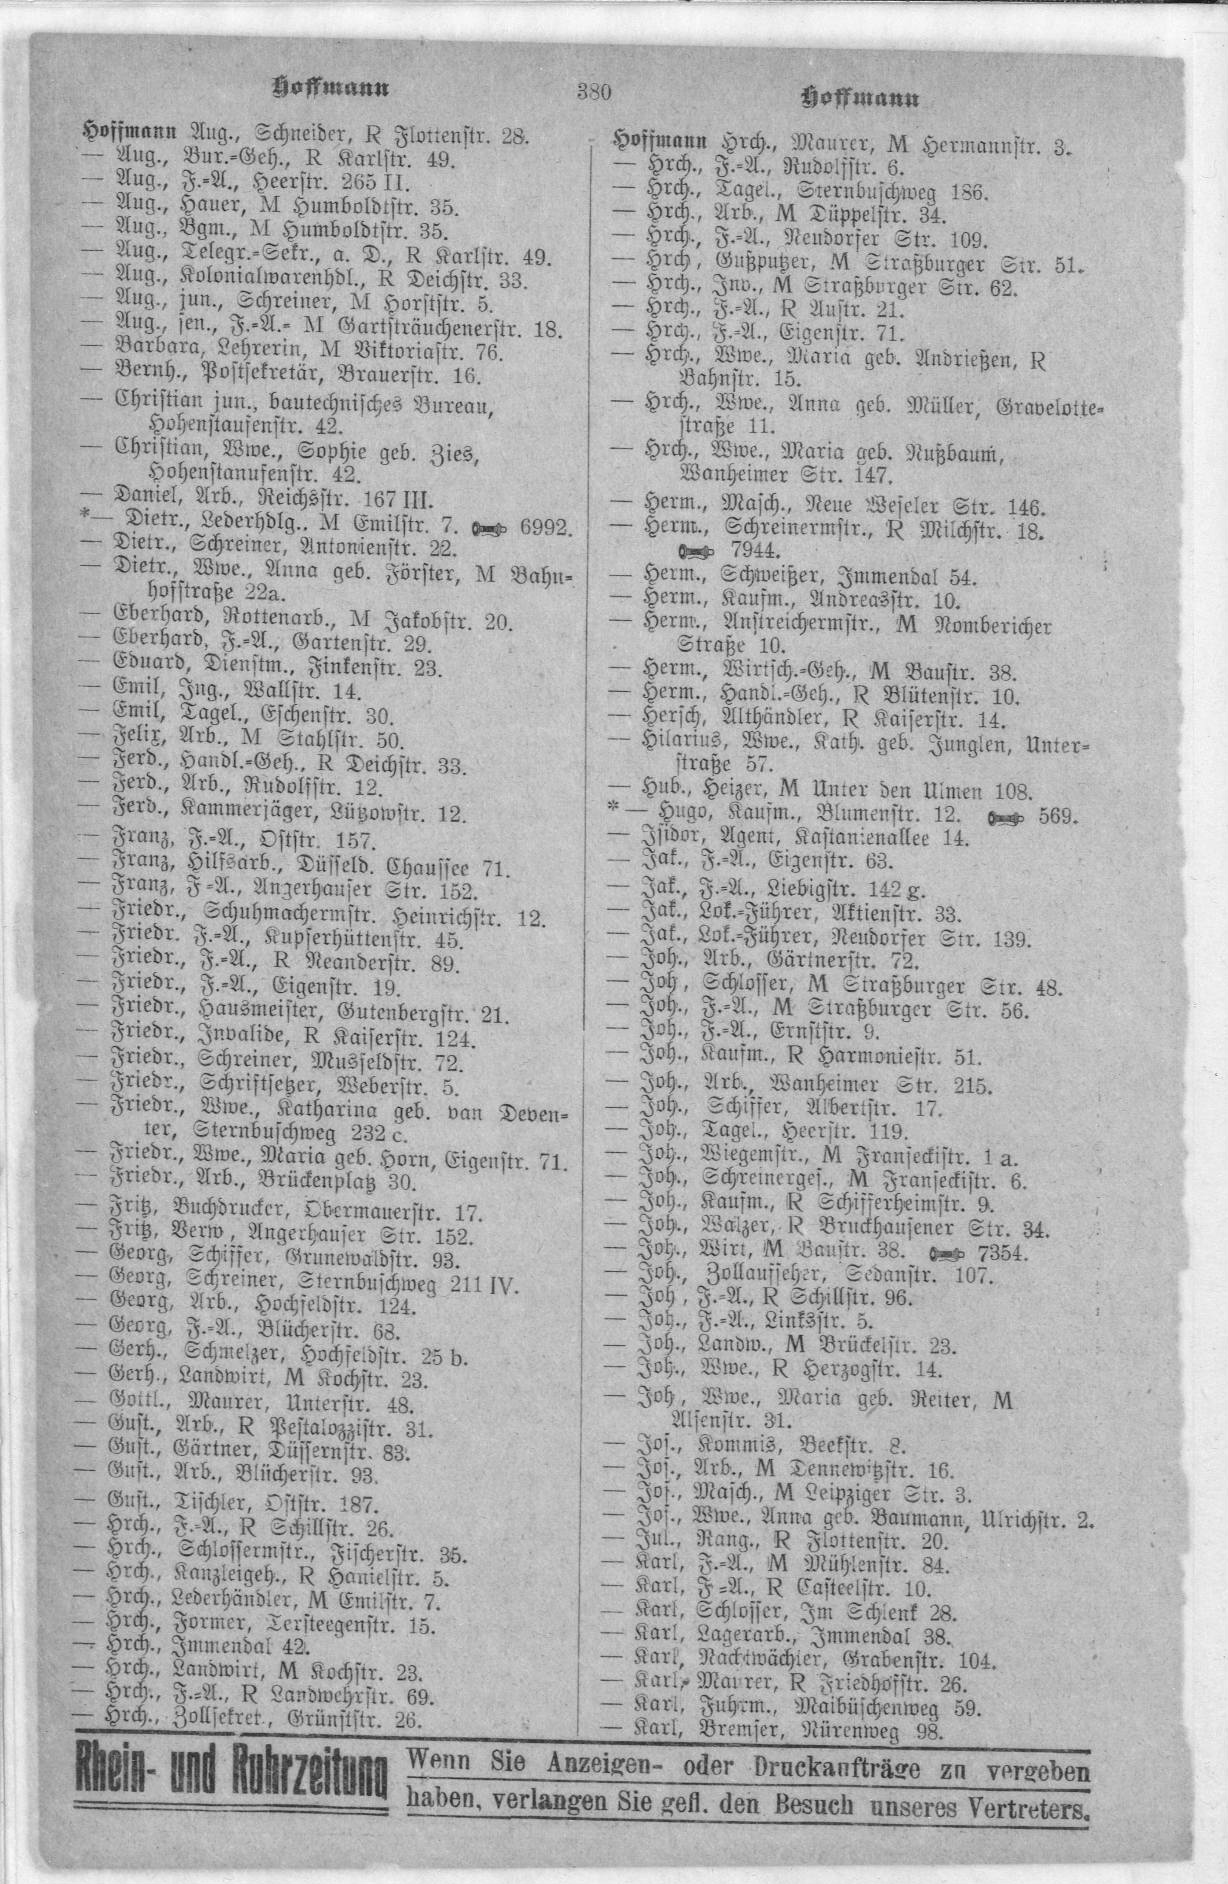 Hoffmann
380
Hoffmann
Hoffmann Aug., Schneider, R Flottenstr. 28.
— Aug., Bur.-Geh., R Karlstr. 49.
— Aug., F.-A., Heerstr. 265 II.
— Aug., Hauer, M Humboldtstr. 35.
— Aug., Bgm., M Humboldtstr. 35.
— Aug., Telegr.-Sekr., a. D., R Karlstr. 49.
— Aug., Kolonialwarenhdl., R Deichstr. 33.
— Aug., jun., Schreiner, M Horststr. 5.
— Aug., sen., F.-A.- M Gartsträuchenerstr. 18.
— Barbara, Lehrerin, M Viktoriastr. 76.
— Bernh., Postsekretär, Brauerstr. 16.
— Christian jun., bautechnisches Bureau,
Hohenstaufenstr. 42.
— Christian, Wwe., Sophie geb. Zies,
Hohenstanufenstr. 42.
— Daniel, Arb., Reichsstr. 167 III.
*— Dietr., Lederhdlg.. M Emilstr. 7. 6992.
— Dietr., Schreiner, Antonienstr. 22.
— Dietr., Wwe., Anna geb. Förster, M Bahn-
hofstraße 22a.
— Eberhard, Rottenarb., M Jakobstr. 20.
— Eberhard, F.-A., Gartenstr. 29.
— Eduard, Dienstm., Finkenstr. 23.
— Emil, Ing., Wallstr. 14.
— Emil, Tagel., Eschenstr. 30.
— Felix, Arb., M Stahlstr. 50.
— Ferd., Handl.-Geh., R Deichstr. 33.
— Ferd., Arb., Rudolfstr. 12.
— Ferd., Kammerjäger, Lützowstr. 12.
— Franz, F.-A., Oststr. 157.
— Franz, Hilfsarb., Düsseld. Chaussee 71.
— Franz, F -A., Angerhauser Str. 152.
— Friedr., Schuhmachermstr. Heinrichstr. 12.
— Friedr. F.-A., Kupferhüttenstr. 45.
— Friedr., F.-A., R Neanderstr. 89.
— Friedr., F.-A., Eigenstr. 19.
— Friedr., Hausmeister, Gutenbergstr. 21.
— Friedr., Invalide, R Kaiserstr. 124.
— Friedr., Schreiner, Musfeldstr. 72.
— Friedr., Schriftsetzer, Weberstr. 5.
— Friedr., Wwe., Katharina geb. van Deven-
ter, Sternbuschweg 232 c.
— Friedr., Wwe., Maria geb. Horn, Eigenstr. 71.
— Friedr., Arb., Brückenplatz 30.
— Fritz, Buchdrucker, Obermauerstr. 17.
— Fritz, Verw, Angerhauser Str. 152.
— Georg, Schiffer, Grunewaldstr. 93.
— Georg, Schreiner, Sternbuschweg 211 IV.
— Georg, Arb., Hochfeldstr. 124.
— Georg, F.-A., Blücherstr. 68.
— Gerh., Schmelzer, Hochfeldstr. 25 b.
— Gerh., Landwirt, M Kochstr. 23.
— Gottl., Maurer, Unterstr. 48.
— Gust., Arb., R Pestalozzistr. 31.
— Gust., Gärtner, Düssernstr. 83.
— Gust., Arb., Blücherstr. 93.
— Gust., Tischler, Oststr. 187.
— Hrch., F.-A., R Schillstr. 26.
— Hrch., Schlossermstr., Fischerstr. 35.
— Hrch., Kanzleigeh., R Hanielstr. 5.
— Hrch., Lederhändler, M Emilstr. 7.
— Hrch., Former, Tersteegenstr. 15.
— Hrch., Immendal 42.
— Hrch., Landwirt, M Kochstr. 23.
— Hrch., F.-A., R Landwehrstr. 69.
— Hrch., Zollsekret., Grünstr. 26.
Hoffmann Hrch., Maurer, M Hermannstr. 3.
— Hrch., F.-A., Rudolfstr. 6.
— Hrch., Tagel., Sternbuschweg 186.
— Hrch., Arb., M Düppelstr. 34.
— Hrch., F.-A., Neudorfer Str. 109.
— Hrch, Gußputzer, M Straßburger Str. 51.
— Hrch., Inv., M Straßburger Str. 62.
— Hrch., F.-A., R Austr. 21.
— Hrch., F.-A., Eigenstr. 71.
— Hrch., Wwe., Maria geb. Andrießen, R
Bahnstr. 15.
— Hrch., Wwe., Anna geb. Müller, Gravelotte-
straße 11.
— Hrch., Wwe., Maria geb. Nußbaum,
Wanheimer Str. 147.
— Herm., Masch., Neue Weseler Str. 146.
— Herm., Schreinermstr., R Milchstr. 18.
7944.
— Herm., Schweißer, Immendal 54.
— Herm., Kaufm., Andreasstr. 10.
— Herm., Anstreichermstr., M Nombericher
Straße 10.
— Herm., Wirtsch.-Geh., M Baustr. 38.
— Herm., Handl.-Geh., R Blütenstr. 10.
— Hersch, Althändler, R Kaiserstr. 14.
— Hilarius, Wwe., Kath. geb. Junglen, Unter-
straße 57.
— Hub., Heizer, M Unter den Ulmen 108.
*— Hugo, Kaufm., Blumenstr. 12. 569.
— Isidor, Agent, Kastanienallee 14.
— Jak., F.-A., Eigenstr. 63.
— Jak., F.-A., Liebigstr. 142 g.
— Jak., Lok.-Führer, Aktienstr. 33.
— Jak., Lok.-Führer, Neudorfer Str. 139.
— Joh., Arb., Gärtnerstr. 72.
— Joh, Schlosser, M Straßburger Str. 48.
— Joh., F.-A., M Straßburger Str. 56.
— Joh., F.-A., Ernststr. 9.
— Joh., Kaufm., R Harmoniestr. 51.
— Joh., Arb., Wanheimer Str. 215.
— Joh., Schiffer, Albertstr. 17.
— Joh., Tagel., Heerstr. 119.
— Joh., Wiegemstr., M Franseckistr. 1 a.
— Joh., Schreinerges., M Franseckistr. 6.
— Joh., Kaufm., R Schifferheimstr. 9.
— Joh., Walzer, R Bruckhausener Str. 34.
— Joh., Wirt, M Baustr. 38. 7354.
— Joh., Zollaufseher, Sedanstr. 107.
— Joh, F.-A., R Schillstr. 96.
— Joh., F.-A., Linksstr. 5.
— Joh., Landw., M Brückelstr. 23.
— Joh., Wwe., R Herzogstr. 14.
— Joh, Wwe., Maria geb. Reiter, M
Alsenstr. 31.
— Jos., Kommis, Beekstr. 8.
— Jos., Arb., M Dennewitzstr. 16.
— Jos., Masch., M Leipziger Str. 3.
— Jos., Wwe., Anna geb. Baumann, Ulrichstr. 2.
— Jul., Rang., R Flottenstr. 20.
— Karl, F.-A., M Mühlenstr. 84.
— Karl, F -A., R Casteelstr. 10.
— Karl, Schlosser, Im Schlenk 28.
— Karl, Lagerarb., Immendal 38.
— Karl, Nachtwächter, Grabenstr. 104.
— Karl, Maurer, R Friedhofstr. 26.
— Karl, Fuhrm., Maibüschenweg 59.
— Karl, Bremser, Nürenweg 98.
Rhein- und Ruhrzeitung
Wenn Sie Anzeigen- oder Druckaufträge zu vergeben
haben, verlangen Sie gefl. den Besuch unseres Vertreters.